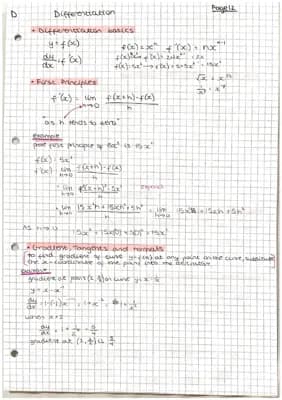 D Differentiation Page 12
• Differentiation basics
y = f(x) f(x) = xⁿ f'(x) = nxⁿ⁻¹
dy/dx = f'(x)
√x = x^½
• First Principles
f'(x) = lim h→0 f(x+h)-f(x) / h
"as h tends to zero"
Example
prove first principle of 5x³ is 15x²
f(x) = 5x³
f'(x) = lim h→0 f(x+h)-f(x) / h
= lim h→0 5(x+h)³ - 5x³ / h expand
= lim h→0 15x²h + 15xh² + 5h³ / h = lim h→0 15x² + 15xh + 5h²
As h→0
• Gradient, Tangents and normals
to find gradient of curve y=f(x) at any point on the curve, substitute
the x-coordinate of the point into the derivative
Example
gradient at point (2, 3/2) on curve y = x - 1/x
y = x - x⁻¹
when x = 2
dy/dx = 1 + 1/2² = 5/4
gradient at (2, 3/2) is 5/4